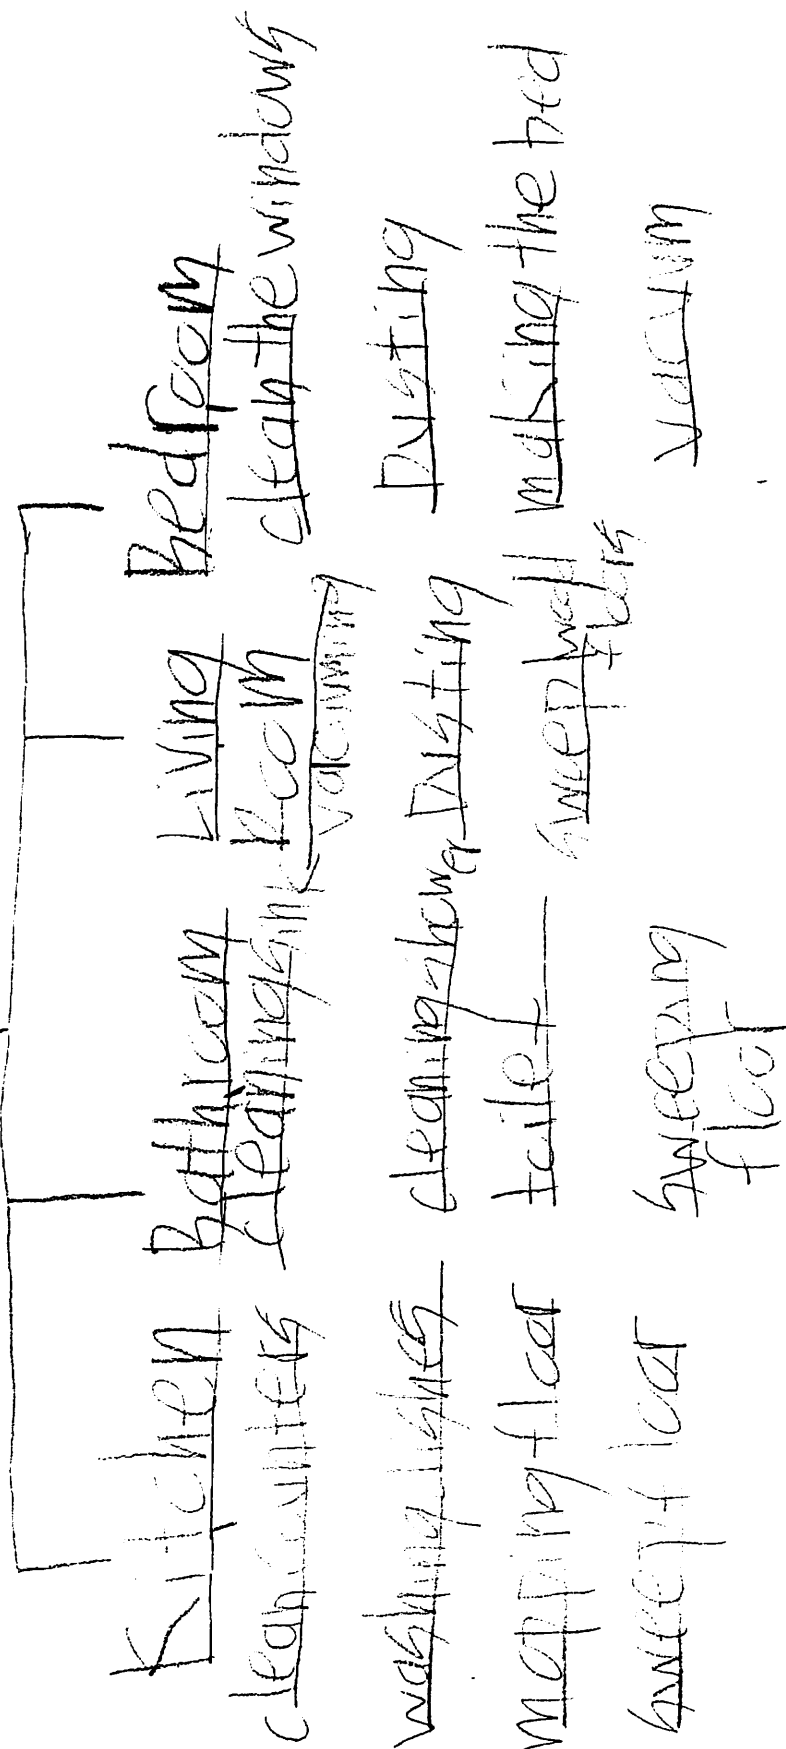 Kitchen
clean counters
washing dishes
mopping floor
sweep floor
Bathroom
cleaning sink
cleaning show
er
toilet
sweeping
floor
Living
Room
vacuming
Dusting
sweep wood
floors
Bedroom
clean the windows
Dusting
making the bed
vacuum